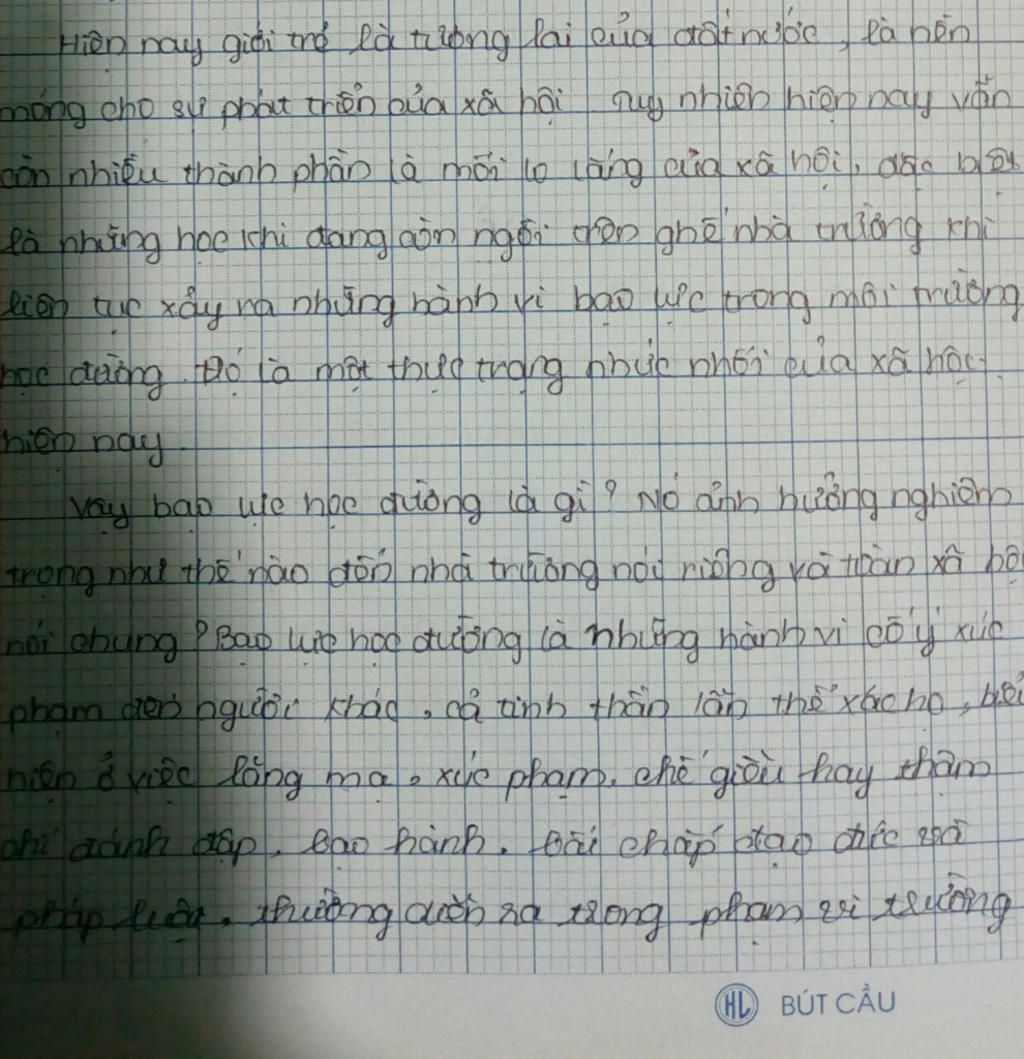 Hiện nay giới trẻ là tương lai của đất nước, là nền
móng cho sự phát triển của xã hội tuy nhiên hiện nay vẫn
còn nhiều thành phần là mối lo lắng của xã hội, đặc biệt
là những học khi đang còn ngồi trên ghế nhà trường khi
liên tục xảy ra những hành vi bạo lực trong môi trường
học đường. Đó là một thực trạng nhức nhối của xã hội
hiện nay
Vậy bạo lực học đường là gì? Nó ảnh hưởng nghiêm
trọng như thế nào đến nhà trường nói riêng và toàn xã hội
nói chung? Bạo lực học đường là những hành vi cố ý xúc
phạm đến người khác, cả tinh thần lẫn thể xác họ, biểu
hiện ở việc lăng mạ, xúc phạm, chế giễu hay thậm
chí đánh đập, bạo hành, bất chấp đạo đức và
pháp luật, thường diễn ra trong phạm vi trường
HL BÚT CẦU